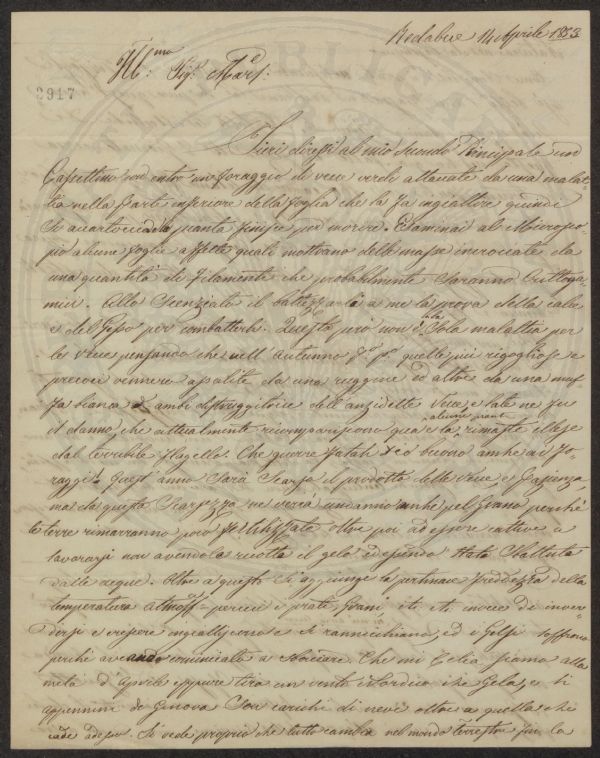 Redabue 14 Aprile 1853
Ill:mo Sig:r March:
2917
Ieri diressi al mio secondo Principale un
Cassettino con entro un foraggio di vece verdi attaccate da una malat-
tia nella parte inferiore della foglia che la fa ingiallire quindi
si accartoccia la pianta finisce per morire. Esaminai al Microsco-
pio alcune foglie affette quali mostrano delle masse incrociate da
una quantità di filamenti che probabilmente saranno Crittoga-
mici. Allo Scenziato il battezzarla a me la prova della calce
e del Gesso per combatterla. Questa però non è la sola malattia per
le Vece pensando che nell'Autunno p.o p.o quelle più rigogliose e
precoci vennero assalite da una ruggine ed altre da una muf
fa bianca ambi distruggitorie dell'anzidette Vece, e tale ne fu
il danno, che attualmente ricompariscono qua e la alcune piant rimaste illese
dal terribile flagello. Che guerre fatali Dio buono anche ai fo-
raggi! Quest'anno sarà scarso il prodotto delle Vece e pazienza
ma da questa scarsezza ne verrà un danno anche pel Grano perchè
le terre rimarranno poco fertilizzate oltre poi ad essere cattive a
lavorarsi non avendole ricotte il gelo ed essendo stata sbattuta
dalle acque. Oltre a questo si aggiunge la pertinace freddezza della
temperatura atmosf- perciui i prati, Grani, etc. etc. invece di inver-
dirsi e crescere ingialliscono e si rannicchiano, ed i Gelsi soffrono
perchè aveano cominciato a sbocciare. Che mi Celia siamo alla
metà d'aprile eppure tira un vento Nordico che Gela, e li
appennini di Genova son carichi di neve oltre a quella che
cade adesso. Si vede proprio che tutto cambia nel mondo terrestre fin la